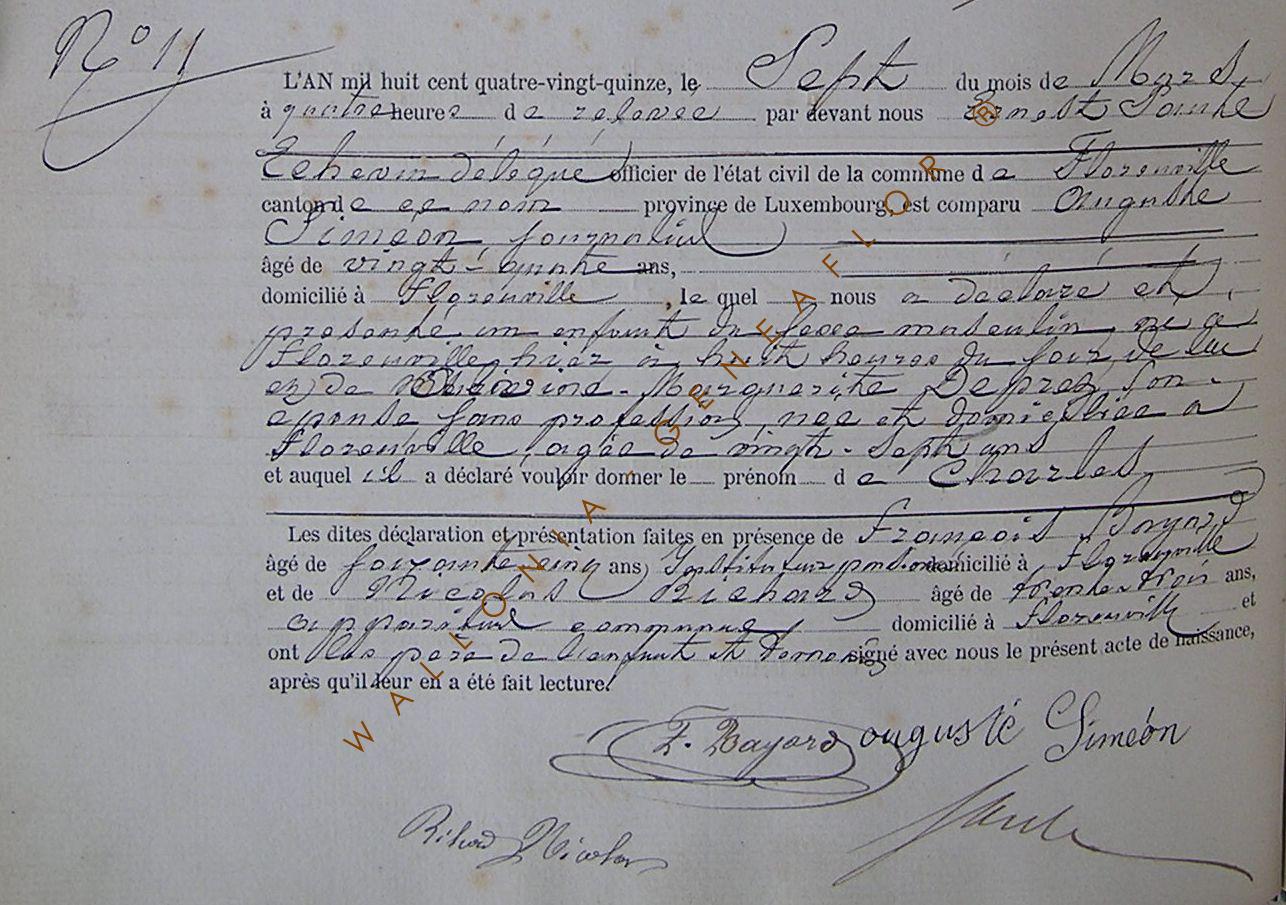 N° 11
L'AN mil huit cent quatre-vingt-quinze, le Sept du mois de Mars,
à quatre heures de relevée par devant nous Ernest
Echevin délégué officier de l'état civil de la commune de Florenville
canton de ce nom province de Luxembourg, est comparu Auguste
Siméon, journalier
âgé de vingt-quatre ans,
domicilié à Florenville, le quel nous a déclaré et
présenté un enfant du sexe masculin, né a
Florenville hier à huit heures du soir de lui
et de Marguerite Deprez, son
epouse sans profession, née et domiciliée a
Florenville, agée de vingt-sept ans
et auquel il a déclaré vouloir donner le prénom de Charles
Les dites déclaration et présentation faites en présence de François Bayard
âgé de soixante cinq ans, Instituteur domicilié à Florenville
et de Nicolas Richard âgé de trente trois ans,
appariteur communal domicilié à Florenville et
ont les père de l'enfant et temoins signé avec nous le présent acte de naissance,
après qu'il leur en a été fait lecture.
F. Bayard auguste Siméon
Nicolas
WALLONIA - GENEAFLOR ®